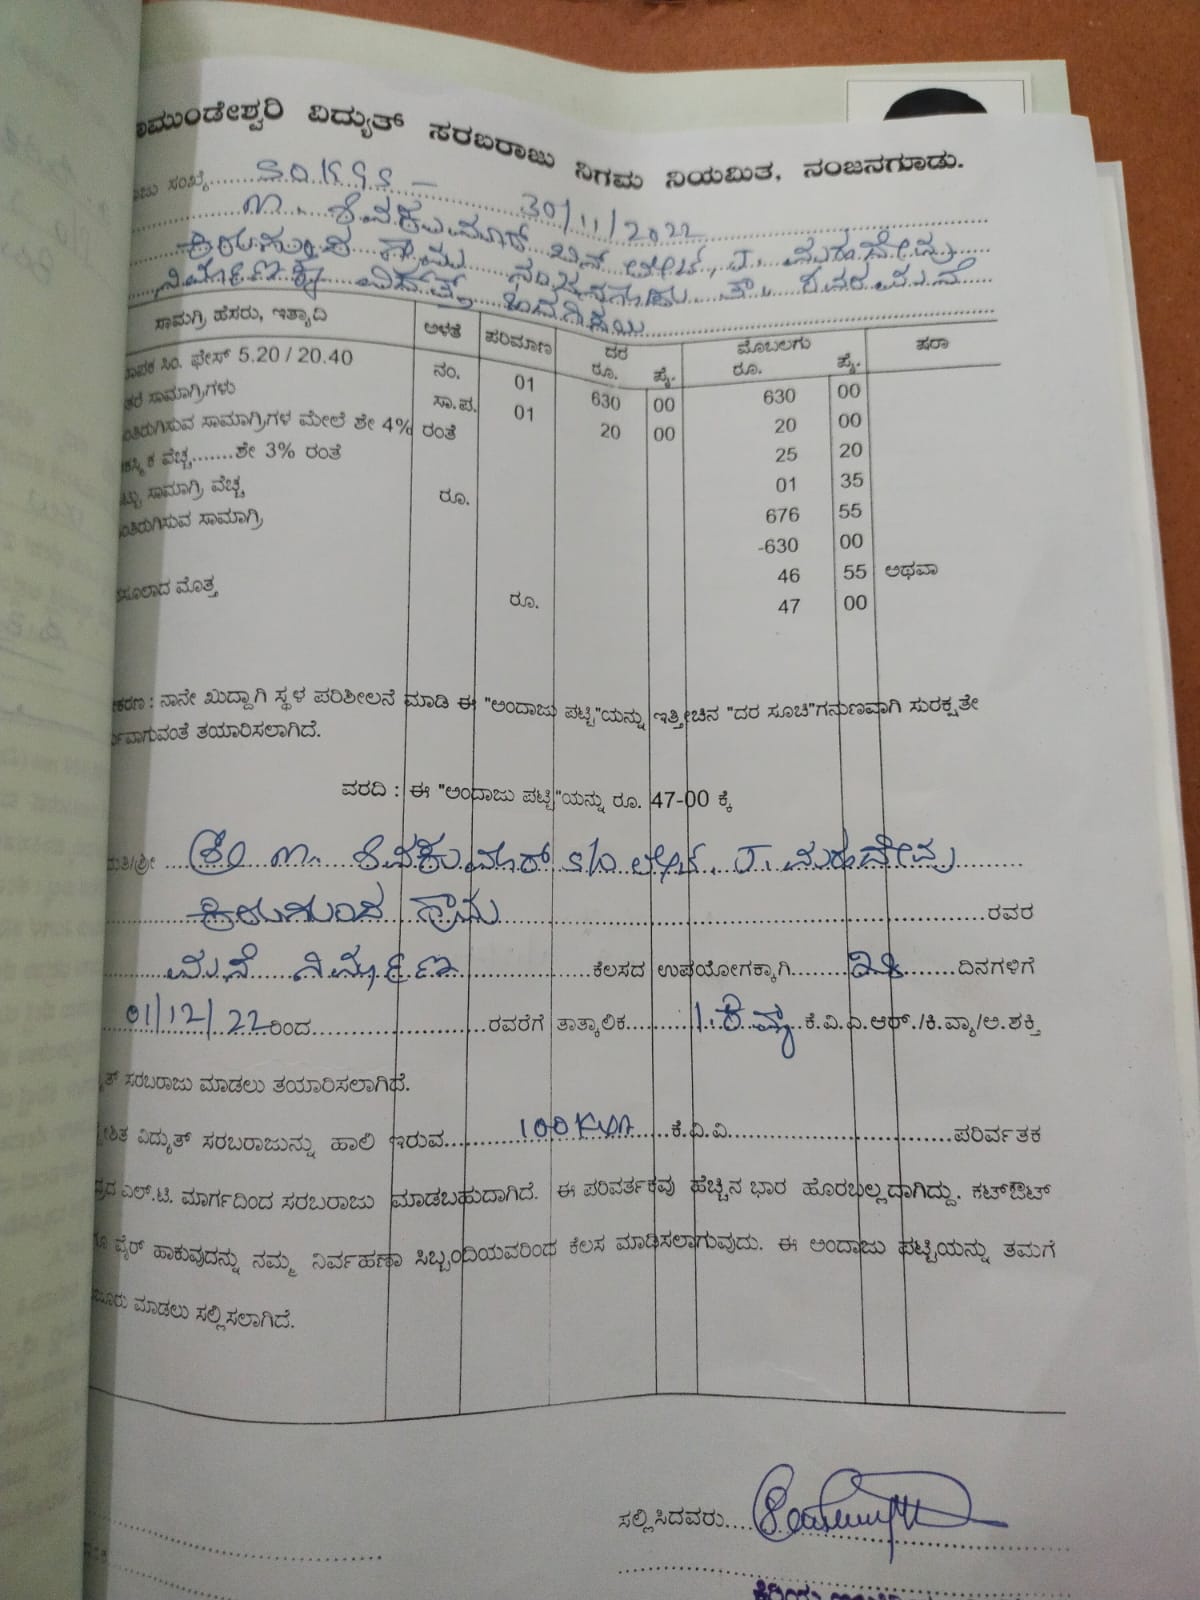 ಾಮುಂಡೇಶ್ವರಿ ವಿದ್ಯುತ್ ಸರಬರಾಜು ನಿಗಮ ನಿಯಮಿತ, ನಂಜನಗೂಡು.
ಸಂಖ್ಯೆ 30/11/2022
ಶಿವಕುಮಾರ್ ಬಿನ್ ಲೇಟ್,
ಗ್ರಾಮ ನಂಜನಗೂಡು ತಾ, ರವರ ಮನೆ
ನಿರ್ಮಾಣಕ್ಕೆ ವಿದ್ಯುತ್
ಸಾಮಗ್ರಿ ಹೆಸರು, ಇತ್ಯಾದಿ ಅಳತೆ ಪರಿಮಾಣ ದರ ರೂ. ಪೈ. ಮೊಬಲಗು ರೂ. ಪೈ. ಷರಾ
ಾಪಕ ಸಿಂ. ಫೇಸ್ 5.20 / 20.40 ನಂ. 01 630 00 630 00
ತರೆ ಸಾಮಾಗ್ರಿಗಳು ಸಾ.ಪ. 01 20 00 20 00
ಂತಿರುಗಿಸುವ ಸಾಮಾಗ್ರಿಗಳ ಮೇಲೆ ಶೇ 4% ರಂತೆ 25 20
ವೆಚ್ಚ.......ಶೇ 3% ರಂತೆ 01 35
ಟ್ಟು ಸಾಮಾಗ್ರಿ ವೆಚ್ಚ ರೂ. 676 55
ಂತಿರುಗಿಸುವ ಸಾಮಾಗ್ರಿ -630 00
46 55 ಅಥವಾ
ಸೂಲಾದ ಮೊತ್ತ ರೂ. 47 00
ೀಕರಣ : ನಾನೇ ಖುದ್ದಾಗಿ ಸ್ಥಳ ಪರಿಶೀಲನೆ ಮಾಡಿ ಈ "ಅಂದಾಜು ಪಟ್ಟಿ"ಯನ್ನು ಇತ್ತೀಚಿನ "ದರ ಸೂಚಿ"ಗನುಣವಾಗಿ ಸುರಕ್ಷತೇ
ವಾಗುವಂತೆ ತಯಾರಿಸಲಾಗಿದೆ.
ವರದಿ : ಈ "ಅಂದಾಜು ಪಟ್ಟಿ"ಯನ್ನು ರೂ. 47-00 ಕ್ಕೆ
ಮತಿ/ಶ್ರೀ ಶ್ರೀ ಶಿವಕುಮಾರ್ S/O ಲೇಟ್.
ಗ್ರಾಮ ರವರ
ಮನೆ ನಿರ್ಮಾಣ ಕೆಲಸದ ಉಪಯೋಗಕ್ಕಾಗಿ ೨೮ ದಿನಗಳಿಗೆ
01/12/22 ರಿಂದ ರವರೆಗೆ ತಾತ್ಕಾಲಿಕ 1.ಕಿವ್ಯಾ ಕೆ.ವಿ.ಎ.ಆರ್./ಕಿ.ವ್ಯಾ/ಅ.ಶಕ್ತಿ
ತ್ ಸರಬರಾಜು ಮಾಡಲು ತಯಾರಿಸಲಾಗಿದೆ.
ವಿದ್ಯುತ್ ಸರಬರಾಜುನ್ನು ಹಾಲಿ ಇರುವ 100 KVA ಕೆ.ವಿ.ಎ. ಪರಿವರ್ತಕ
ಎಲ್.ಟಿ. ಮಾರ್ಗದಿಂದ ಸರಬರಾಜು ಮಾಡಬಹುದಾಗಿದೆ. ಈ ಪರಿವರ್ತಕವು ಹೆಚ್ಚಿನ ಭಾರ ಹೊರಬಲ್ಲದಾಗಿದ್ದು. ಕಟ್‌ಔಟ್
ವೈರ್ ಹಾಕುವುದನ್ನು ನಮ್ಮ ನಿರ್ವಹಣಾ ಸಿಬ್ಬಂದಿಯವರಿಂದ ಕೆಲಸ ಮಾಡಿಸಲಾಗುವುದು. ಈ ಅಂದಾಜು ಪಟ್ಟಿಯನ್ನು ತಮಗೆ
ಜೂರು ಮಾಡಲು ಸಲ್ಲಿಸಲಾಗಿದೆ.
ಸಲ್ಲಿಸಿದವರು